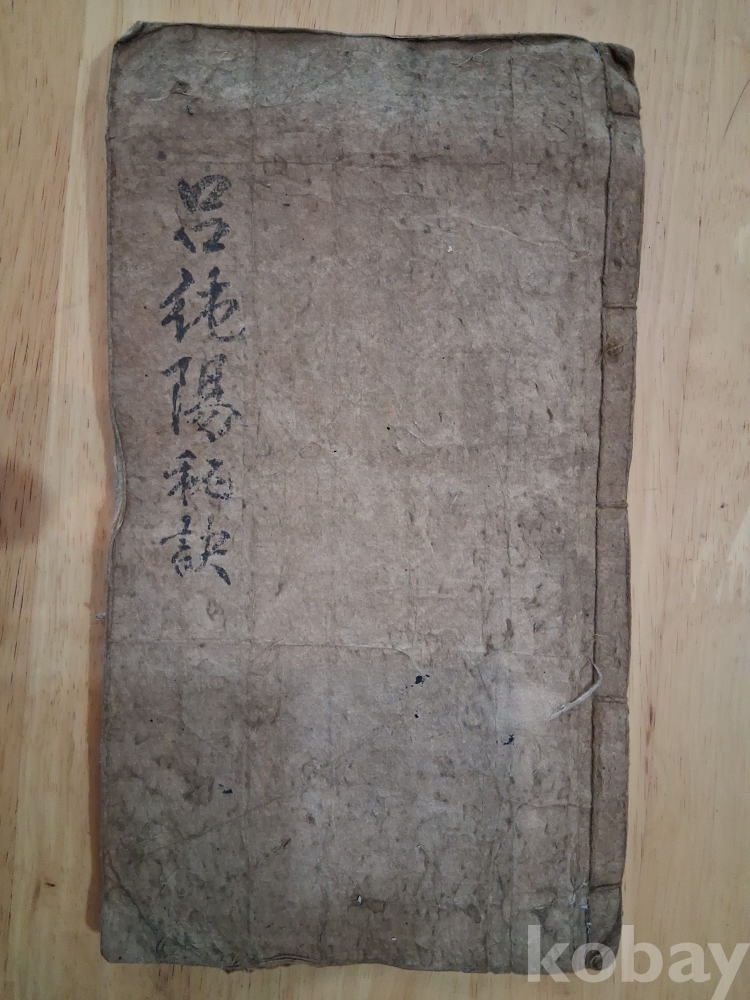 呂純陽秘訣
kobay